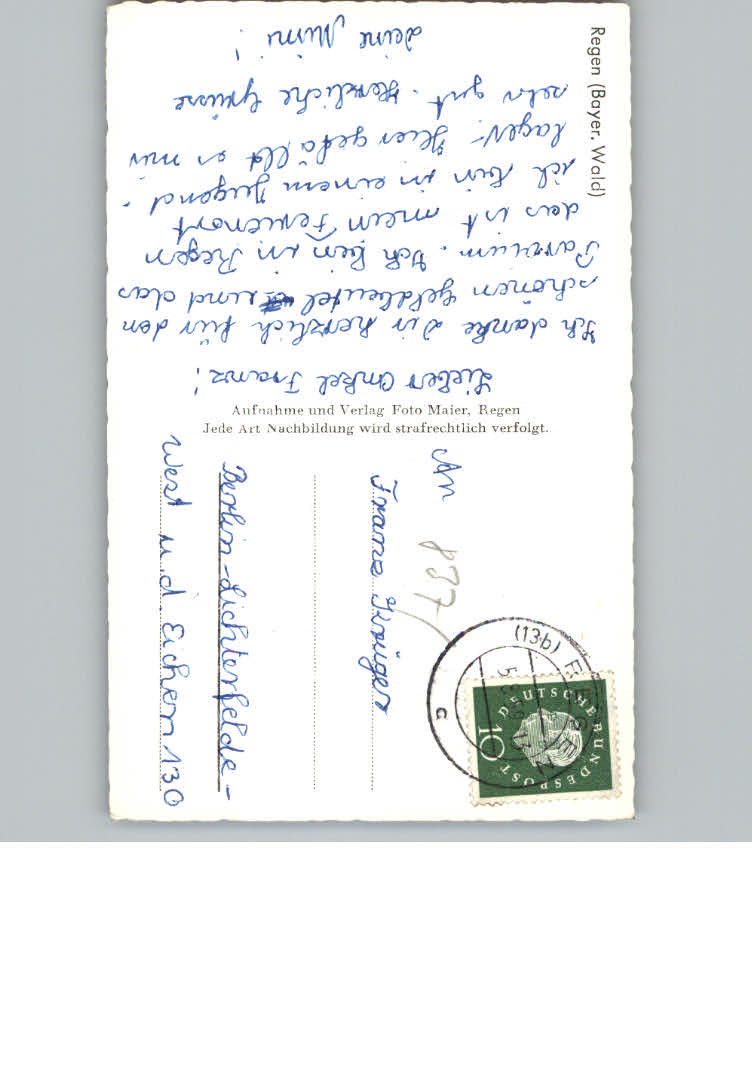 Regen (Bayer. Wald)
Lieber Onkel Franz!
Ich danke Dir herzlich für den
schönen Geldbeutel und das
Parfüm. Ich bin in Regen
das ist mein Ferienort
ich bin in einem Jugend-
lager. Hier gefällt es mir
sehr gut. Herzliche Grüsse
deine Mimi!
Aufnahme und Verlag Foto Maier, Regen
Jede Art Nachbildung wird strafrechtlich verfolgt.
An
Franz Krüger
Berlin-Lichterfelde-
West u.d. Eichen 130
837
(13b) REGEN
c
DEUTSCHE BUNDESPOST
10